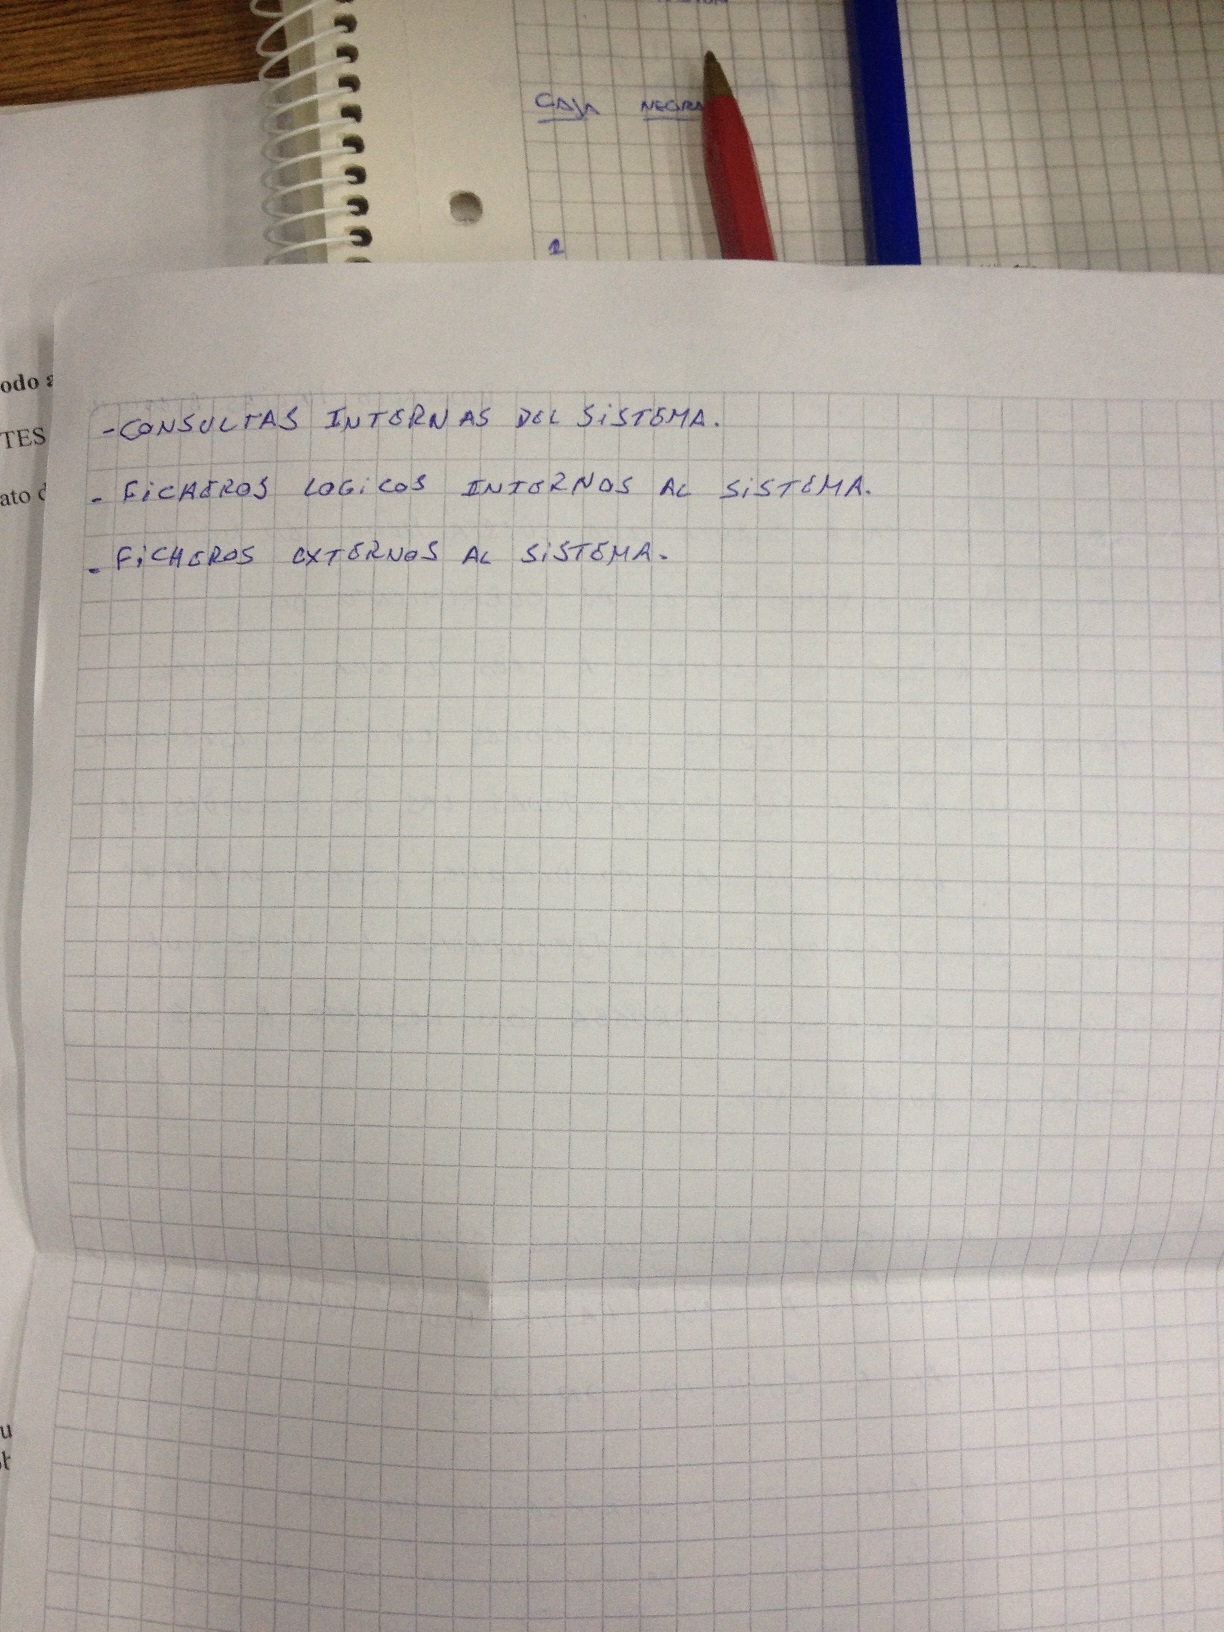 CAJA NEGRA
1
odo a
TES
ato d
- CONSULTAS INTERNAS DEL SISTEMA.
- FICHEROS LOGICOS INTERNOS AL SISTEMA.
- FICHEROS EXTERNOS AL SISTEMA.